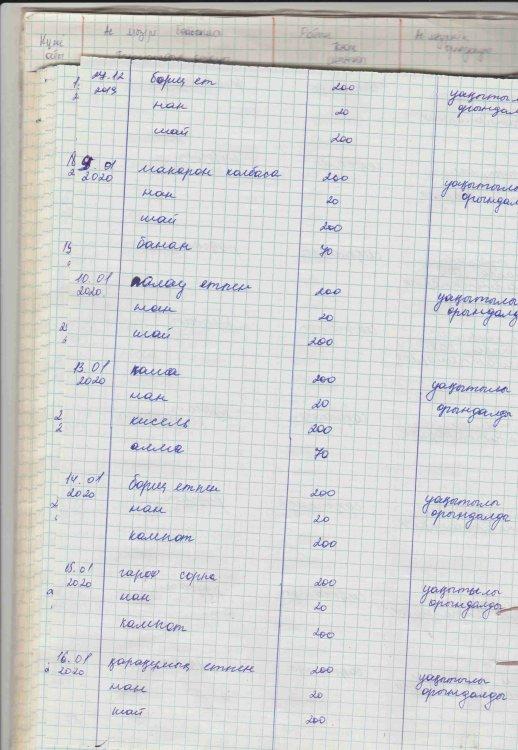 27.12 борщ ет 200 уақытылы
2019 нан 20 орындал
шай 200
9.01 макарон колбаса 200 уақытылы
2020 нан 20 орындал
шай 200
банан 70
10.01 палау етпен 200 уақытылы
2020 нан 20 орындалд
шай 200
13.01 каша 200 уақытылы
2020 нан 20 орындалды
кисель 200
алма 70
14.01 борщ етпен 200 уақытылы
2020 нан 20 орындалды
компот 200
15.01 горох сорпа 200 уақытылы
2020 нан 20 орындалды
компот 200
16.01 қарақұмық етпен 200 уақытылы
2020 нан 20 орындалды
шай 200